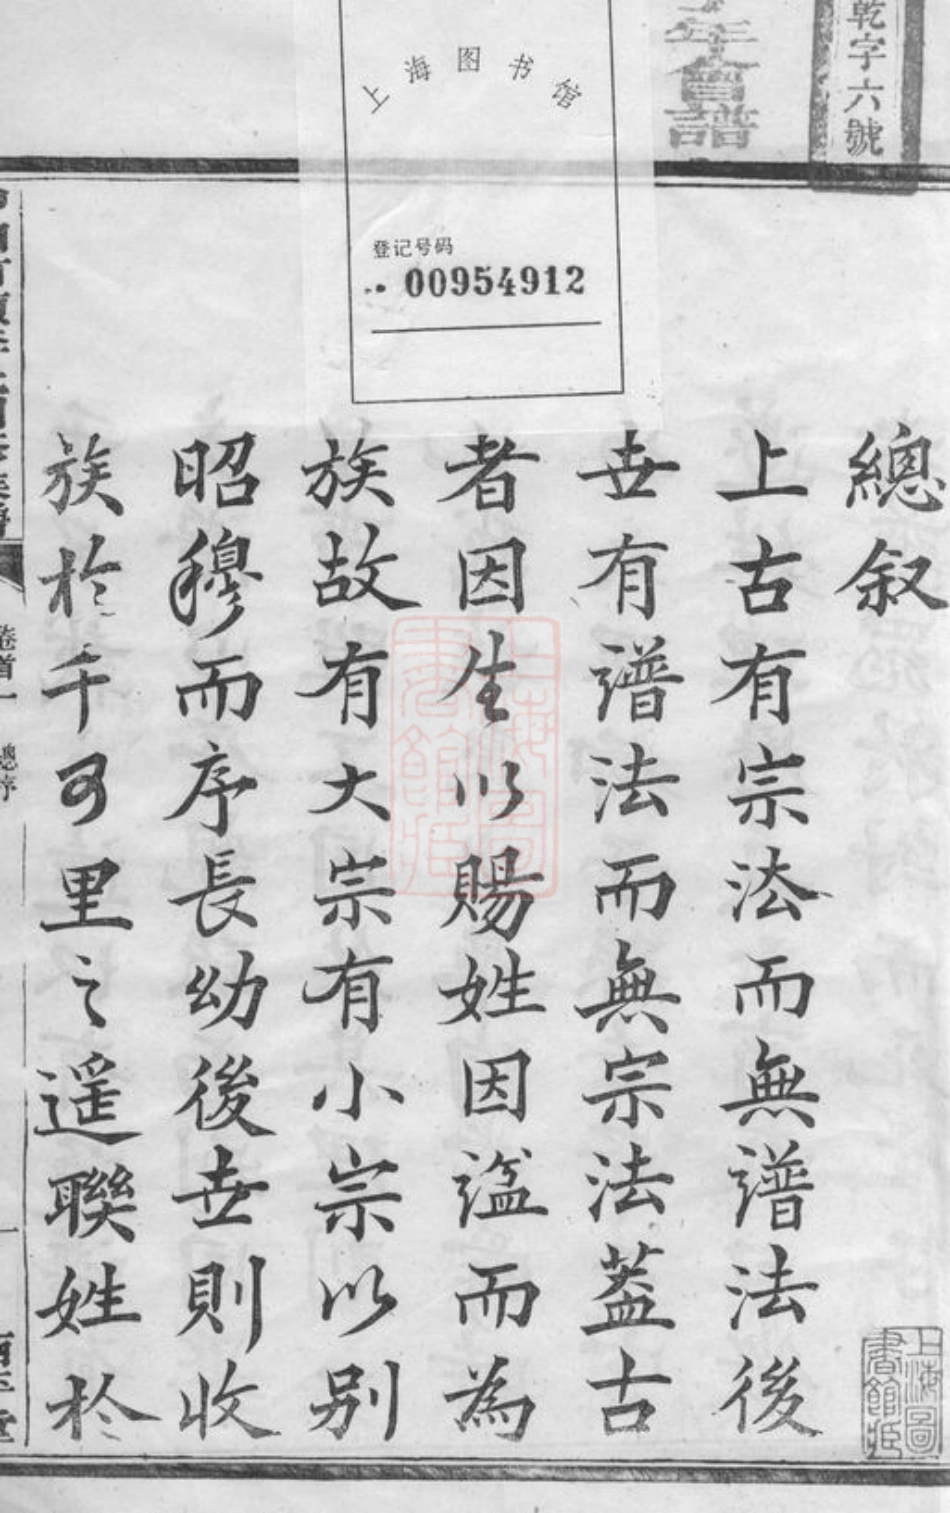 乾字六號
年會譜
上海图书馆
登记号码
00954912
總叙
上古有宗法而無譜法後
世有譜法而無宗法葢古
者因生以賜姓因諡而為
族故有大宗有小宗以別
昭穆而序長幼後世則收
族於千里之遥聯姓於
卷首一
總序
上海圖書館藏
上海圖書館藏